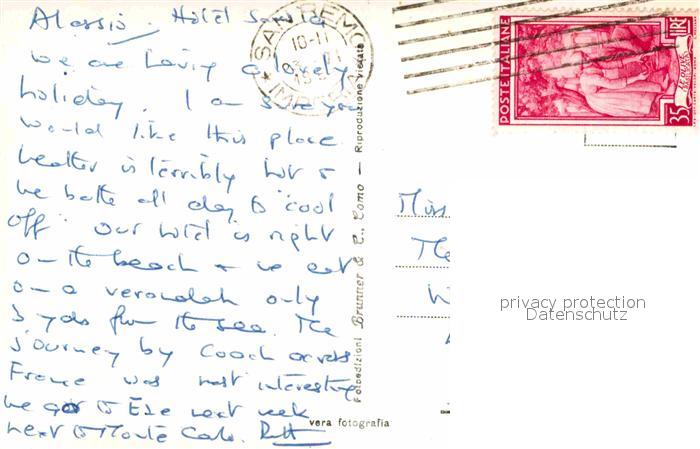 Alassio. Hotel Savoia
We are having a lovely
holiday. I am sure you
would like this place.
Weather is terribly hot &
we bathe all day to "cool
off" our hotel is right
on the beach & we eat
on a verandah only
3 yds from the sea. The
journey by coach across
France was most interesting
we go to Eze next week
next to Monte Carlo. Ruth
SAN REMO
10-11
IMPERIA
Fotoedizioni Brunner & C., Como — Riproduzione vietata
vera fotografia
POSTE ITALIANE
LIRE
35
Miss
The
privacy protection
Datenschutz